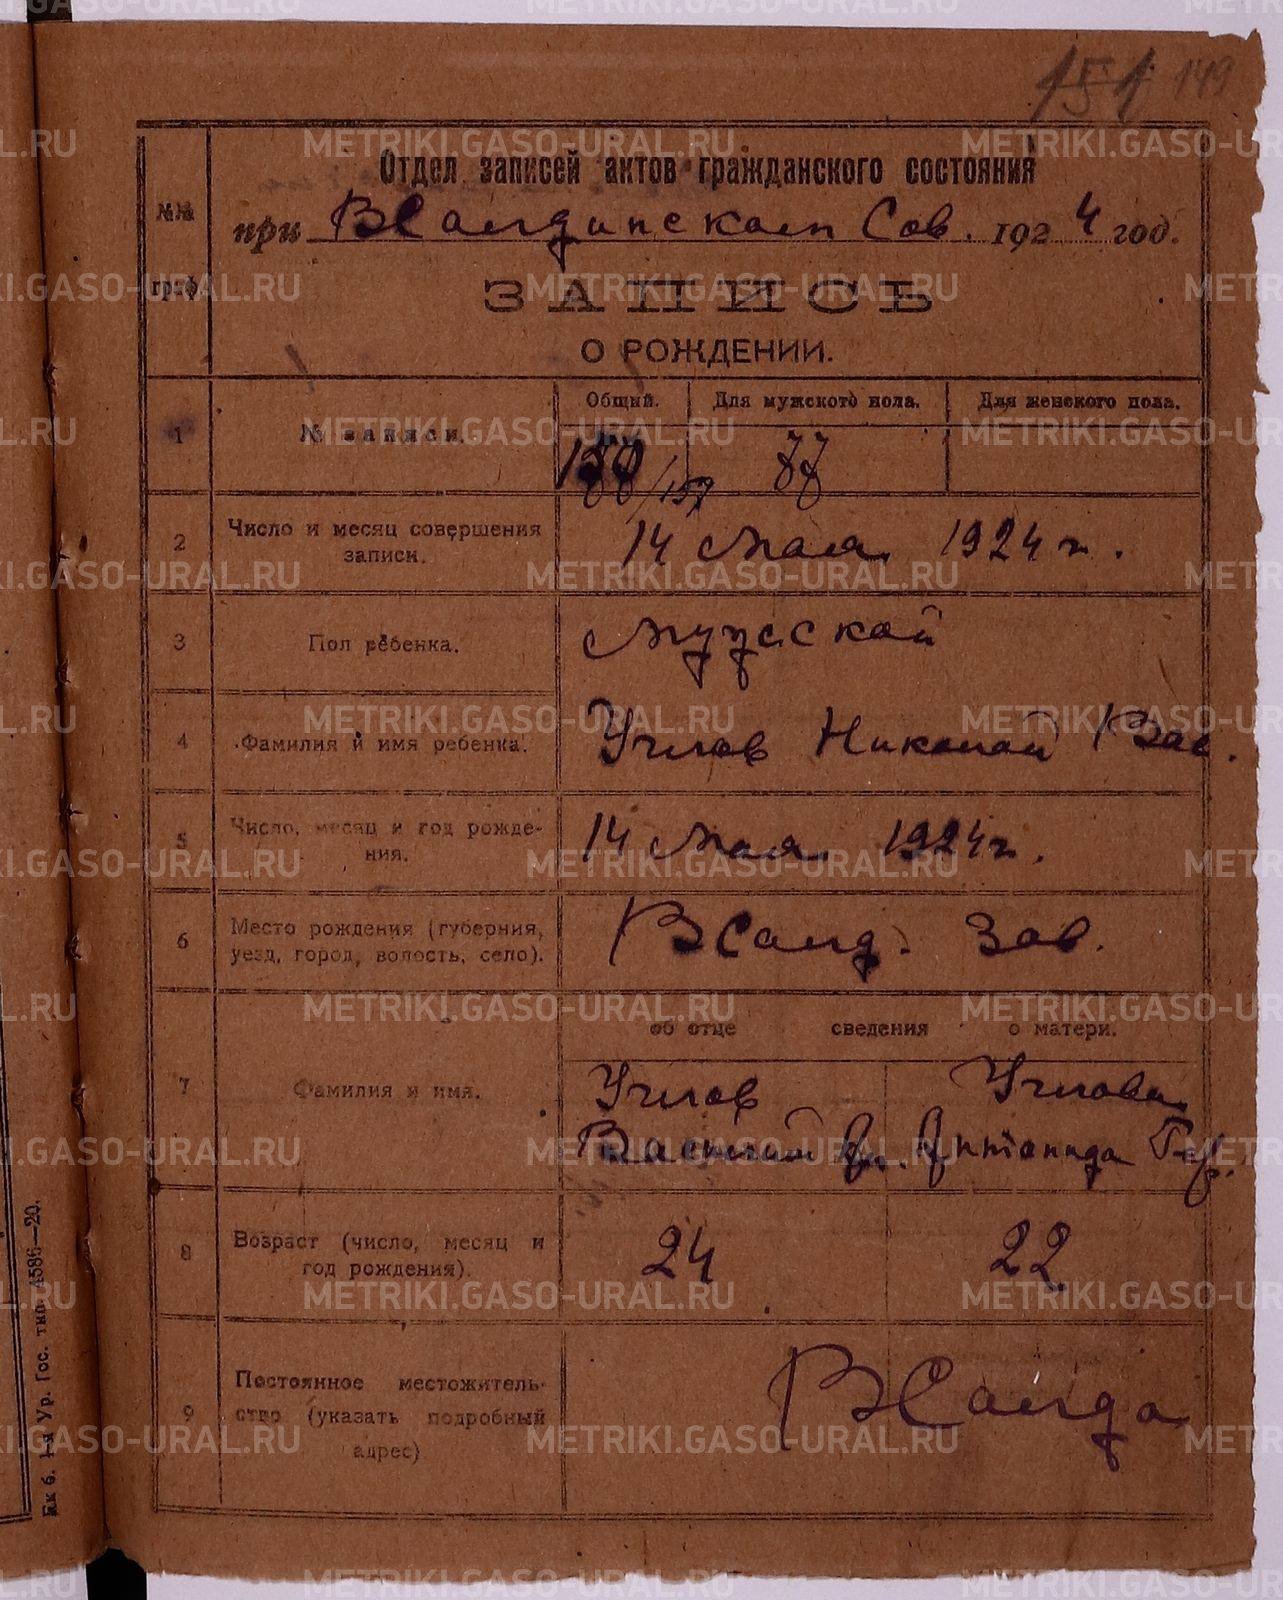 151 149
Отдел записей актов гражданского состояния
№№ граф.
при ВСалдинском Сов. 1924 год.
ЗАПИСЬ
О РОЖДЕНИИ.
Общий. Для мужского пола. Для женского пола.
1 № записи. 77
/157
2 Число и месяц совершения записи. 14 Мая 1924 г.
3 Пол ребенка. Мужской
4 Фамилия и имя ребенка. Углов Николай Вас.
5 Число, месяц и год рожде-
ния. 14 Мая 1924 г.
6 Место рождения (губерния,
уезд, город, волость, село). ВСалд. Зав.
об отце сведения о матери.
7 Фамилия и имя. Углов Углова
Василий Антонида
8 Возраст (число, месяц и
год рождения). 24 22
9 Постоянное местожитель-
ство (указать подробный
адрес) ВСалда
Ек 6. 1-я Ур. Гос. тип. 4586—20.
METRIKI.GASO-URAL.RU